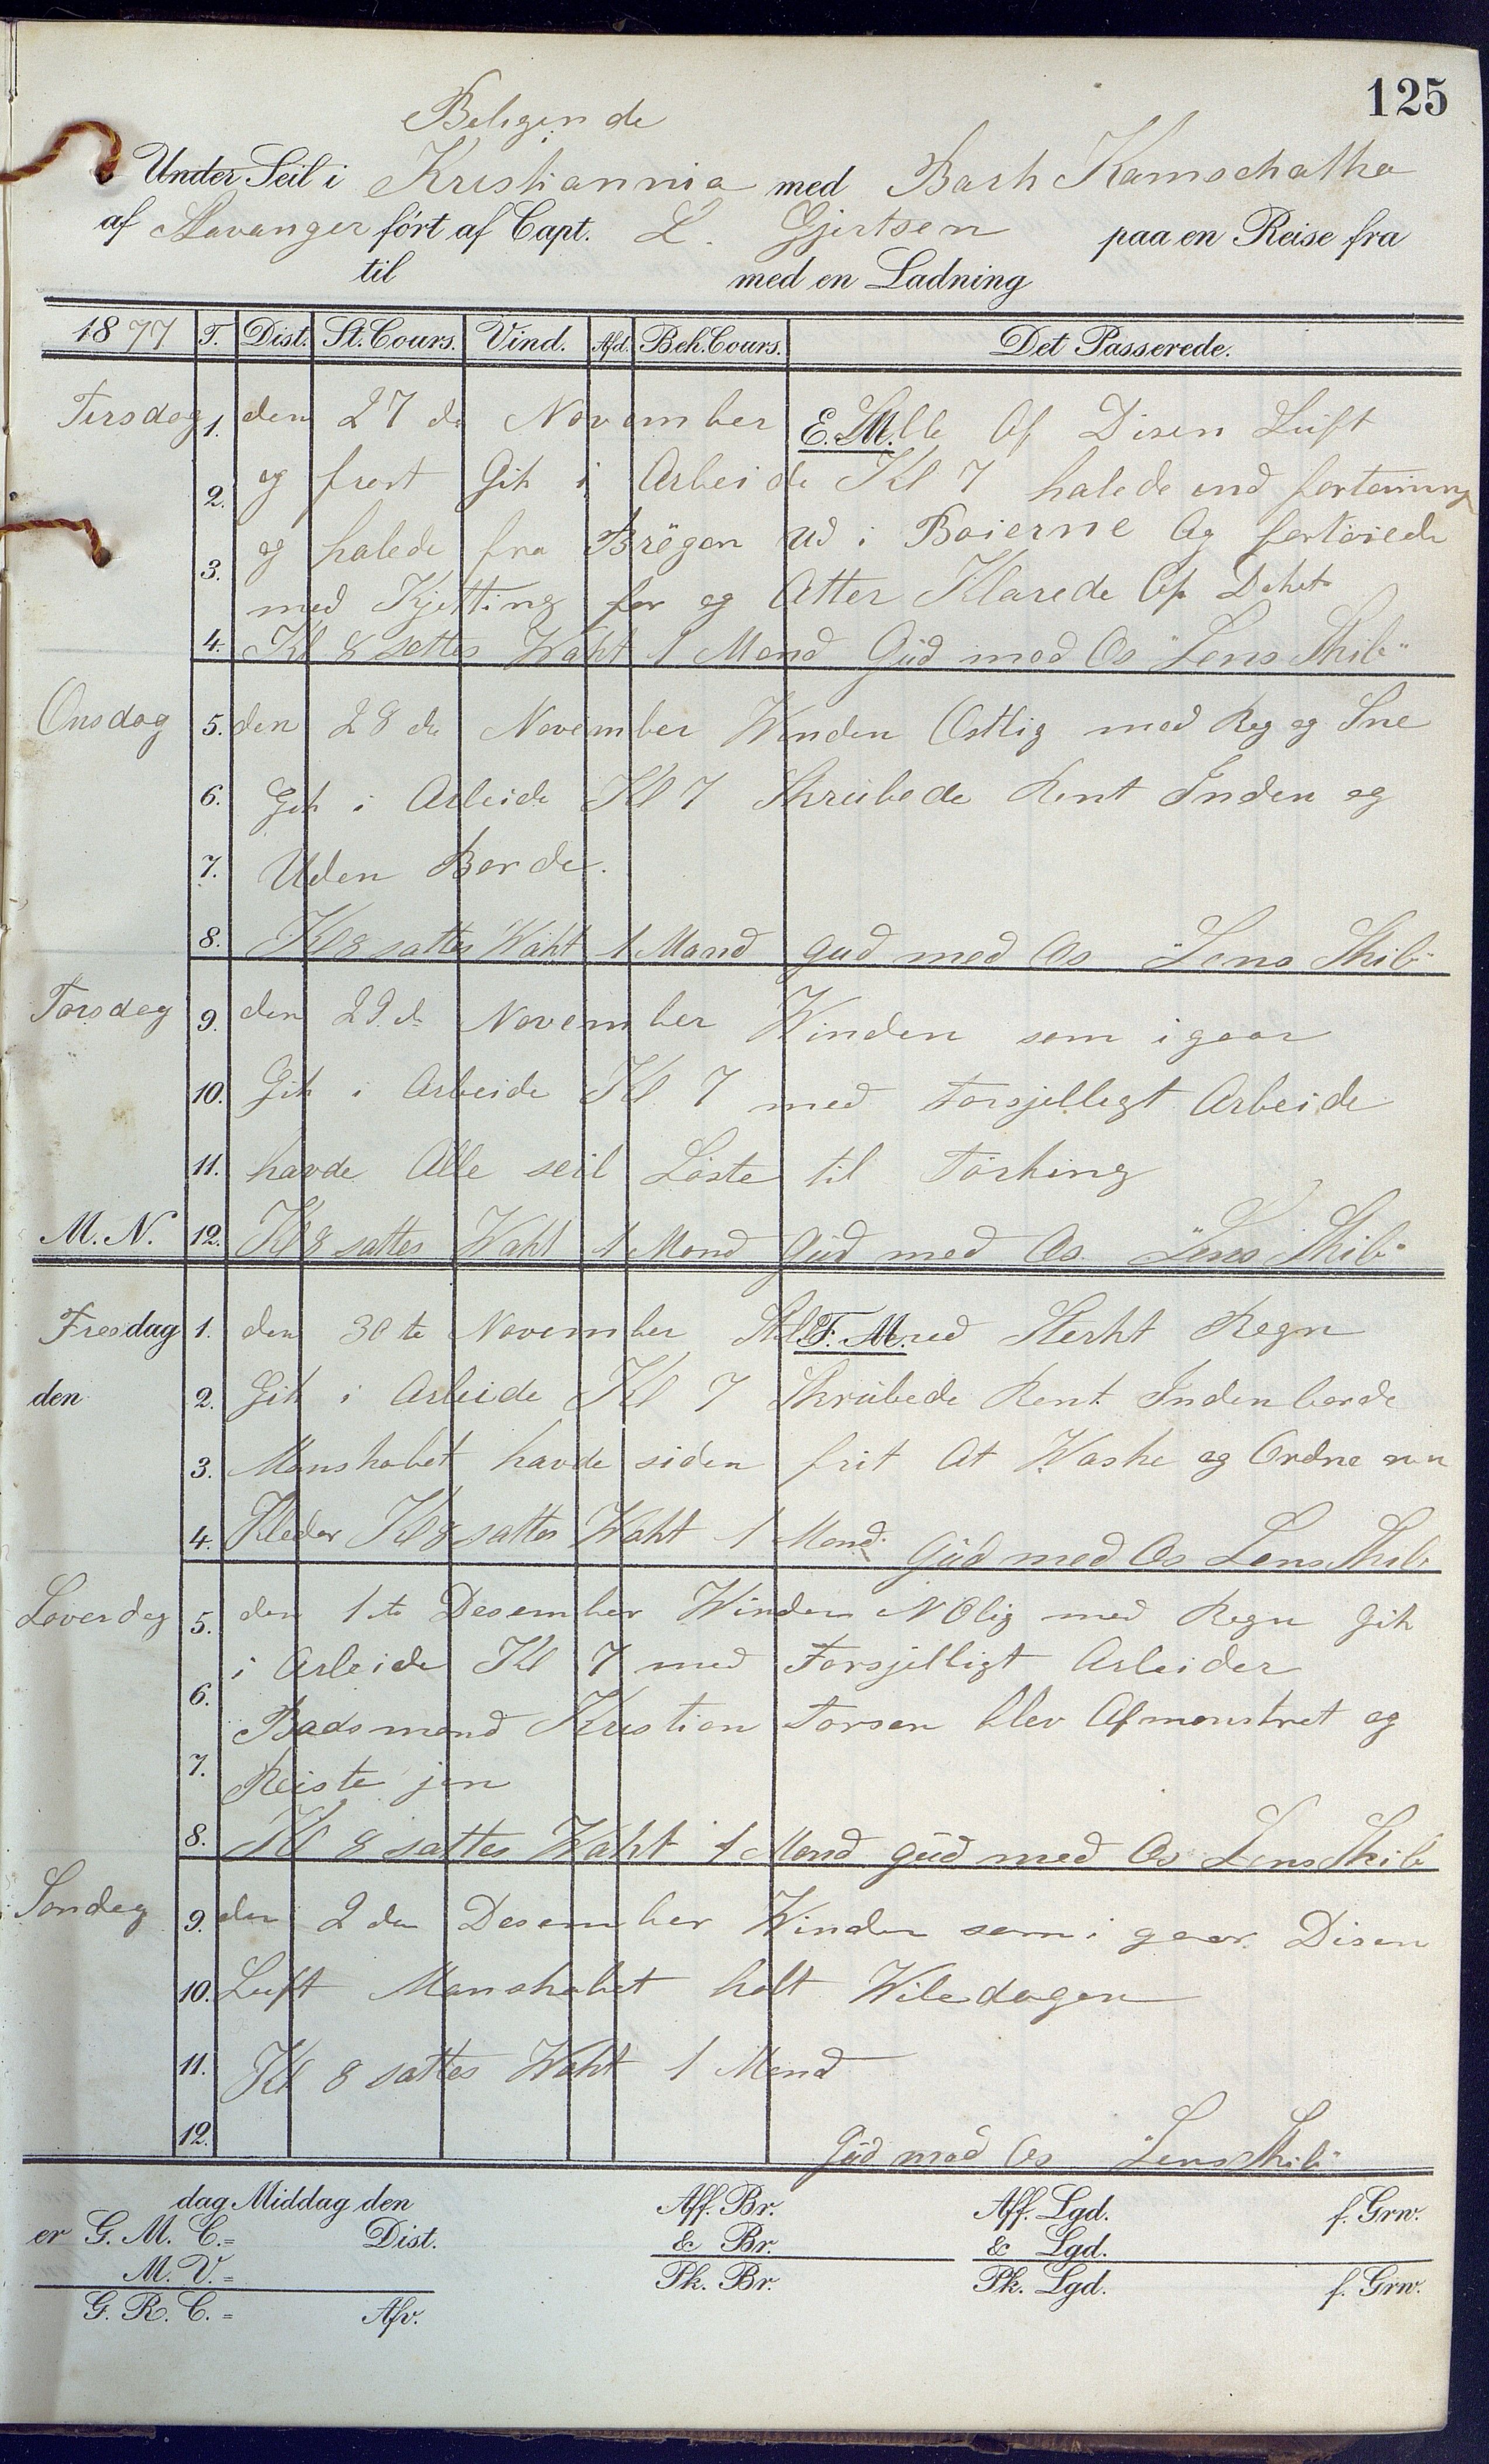 125
Beligende
Under Seil i Kristiannia med Bark Kamschatka
af Stavanger fört af Capt. L. Gjertsen paa en Reise fra
til med en Ladning
1877 T. Dist. St. Cours. Vind. Afd. Beh. Cours. Det Passerede.
E. M.
Tirsdag 1. den 27 de November Stille Af Disen Luft
2. og frost Gik i Arbeide Kl 7 halede ind fortöining
3. og halede fra Brögen ud i Boierne Og fortöiede
med Kjetting for og Atter Klarede Op Deket
4. Kl 8 Settes Waht 1 Mand Gud med Os "Lens Skib"
Onsdag 5. den 28 de November Winden Östlig med Reg og Sne
6. Gik i Arbeide Kl 7 Skrubede Rent Inden og
7. Uden Borde.
8. Kl 8 sattes Waht 1 Mand Gud med Os "Lens Skib"
Torsdag 9. den 29 de November Winden som i gaar
10. Gik i Arbeide Kl 7 med Forsjellegt Arbeide
11. havde Alle seil Löste til Törking
M. N. 12. Kl 8 sattes Waht 1 Mand Gud med Os "Lens Skib"
F. M.
Fresdag 1. den 30 te November Stille med Sterkt Regn
den 2. Gik i Arbeide Kl 7 Skrubede Rent Inden borde
3. Manskabet havde siden frit At Waske og Ordne
4. Kleder Kl 8 sattes Waht 1 Mand. Gud med Os Lens Skib
Loverdag 5. den 1 te Desember Winden NOlig med Regn Gik
i Arbeide Kl 7 med Forsjelligt Arbeider
6. Badsmand Kristian Torsen blev Afmonstret og
7. Reiste jen
8. Kl 8 sattes Waht 1 Mand Gud med Os Lens Skib
Sondag 9. den 2 den Desember Winden som i gaar Disen
10. Luft Manskabet holt Wiledagen
11. Kl 8 sattes Waht 1 Mand
12. Gud med Os "Lens Skib"
dag Middag den Aff. Br. Aff. Lgd. f. Grw.
er G. M. C.= Dist. & Br. & Lgd.
M. V.= Pk. Br. Pk. Lgd. f. Grw.
G. R. C. = Afv.